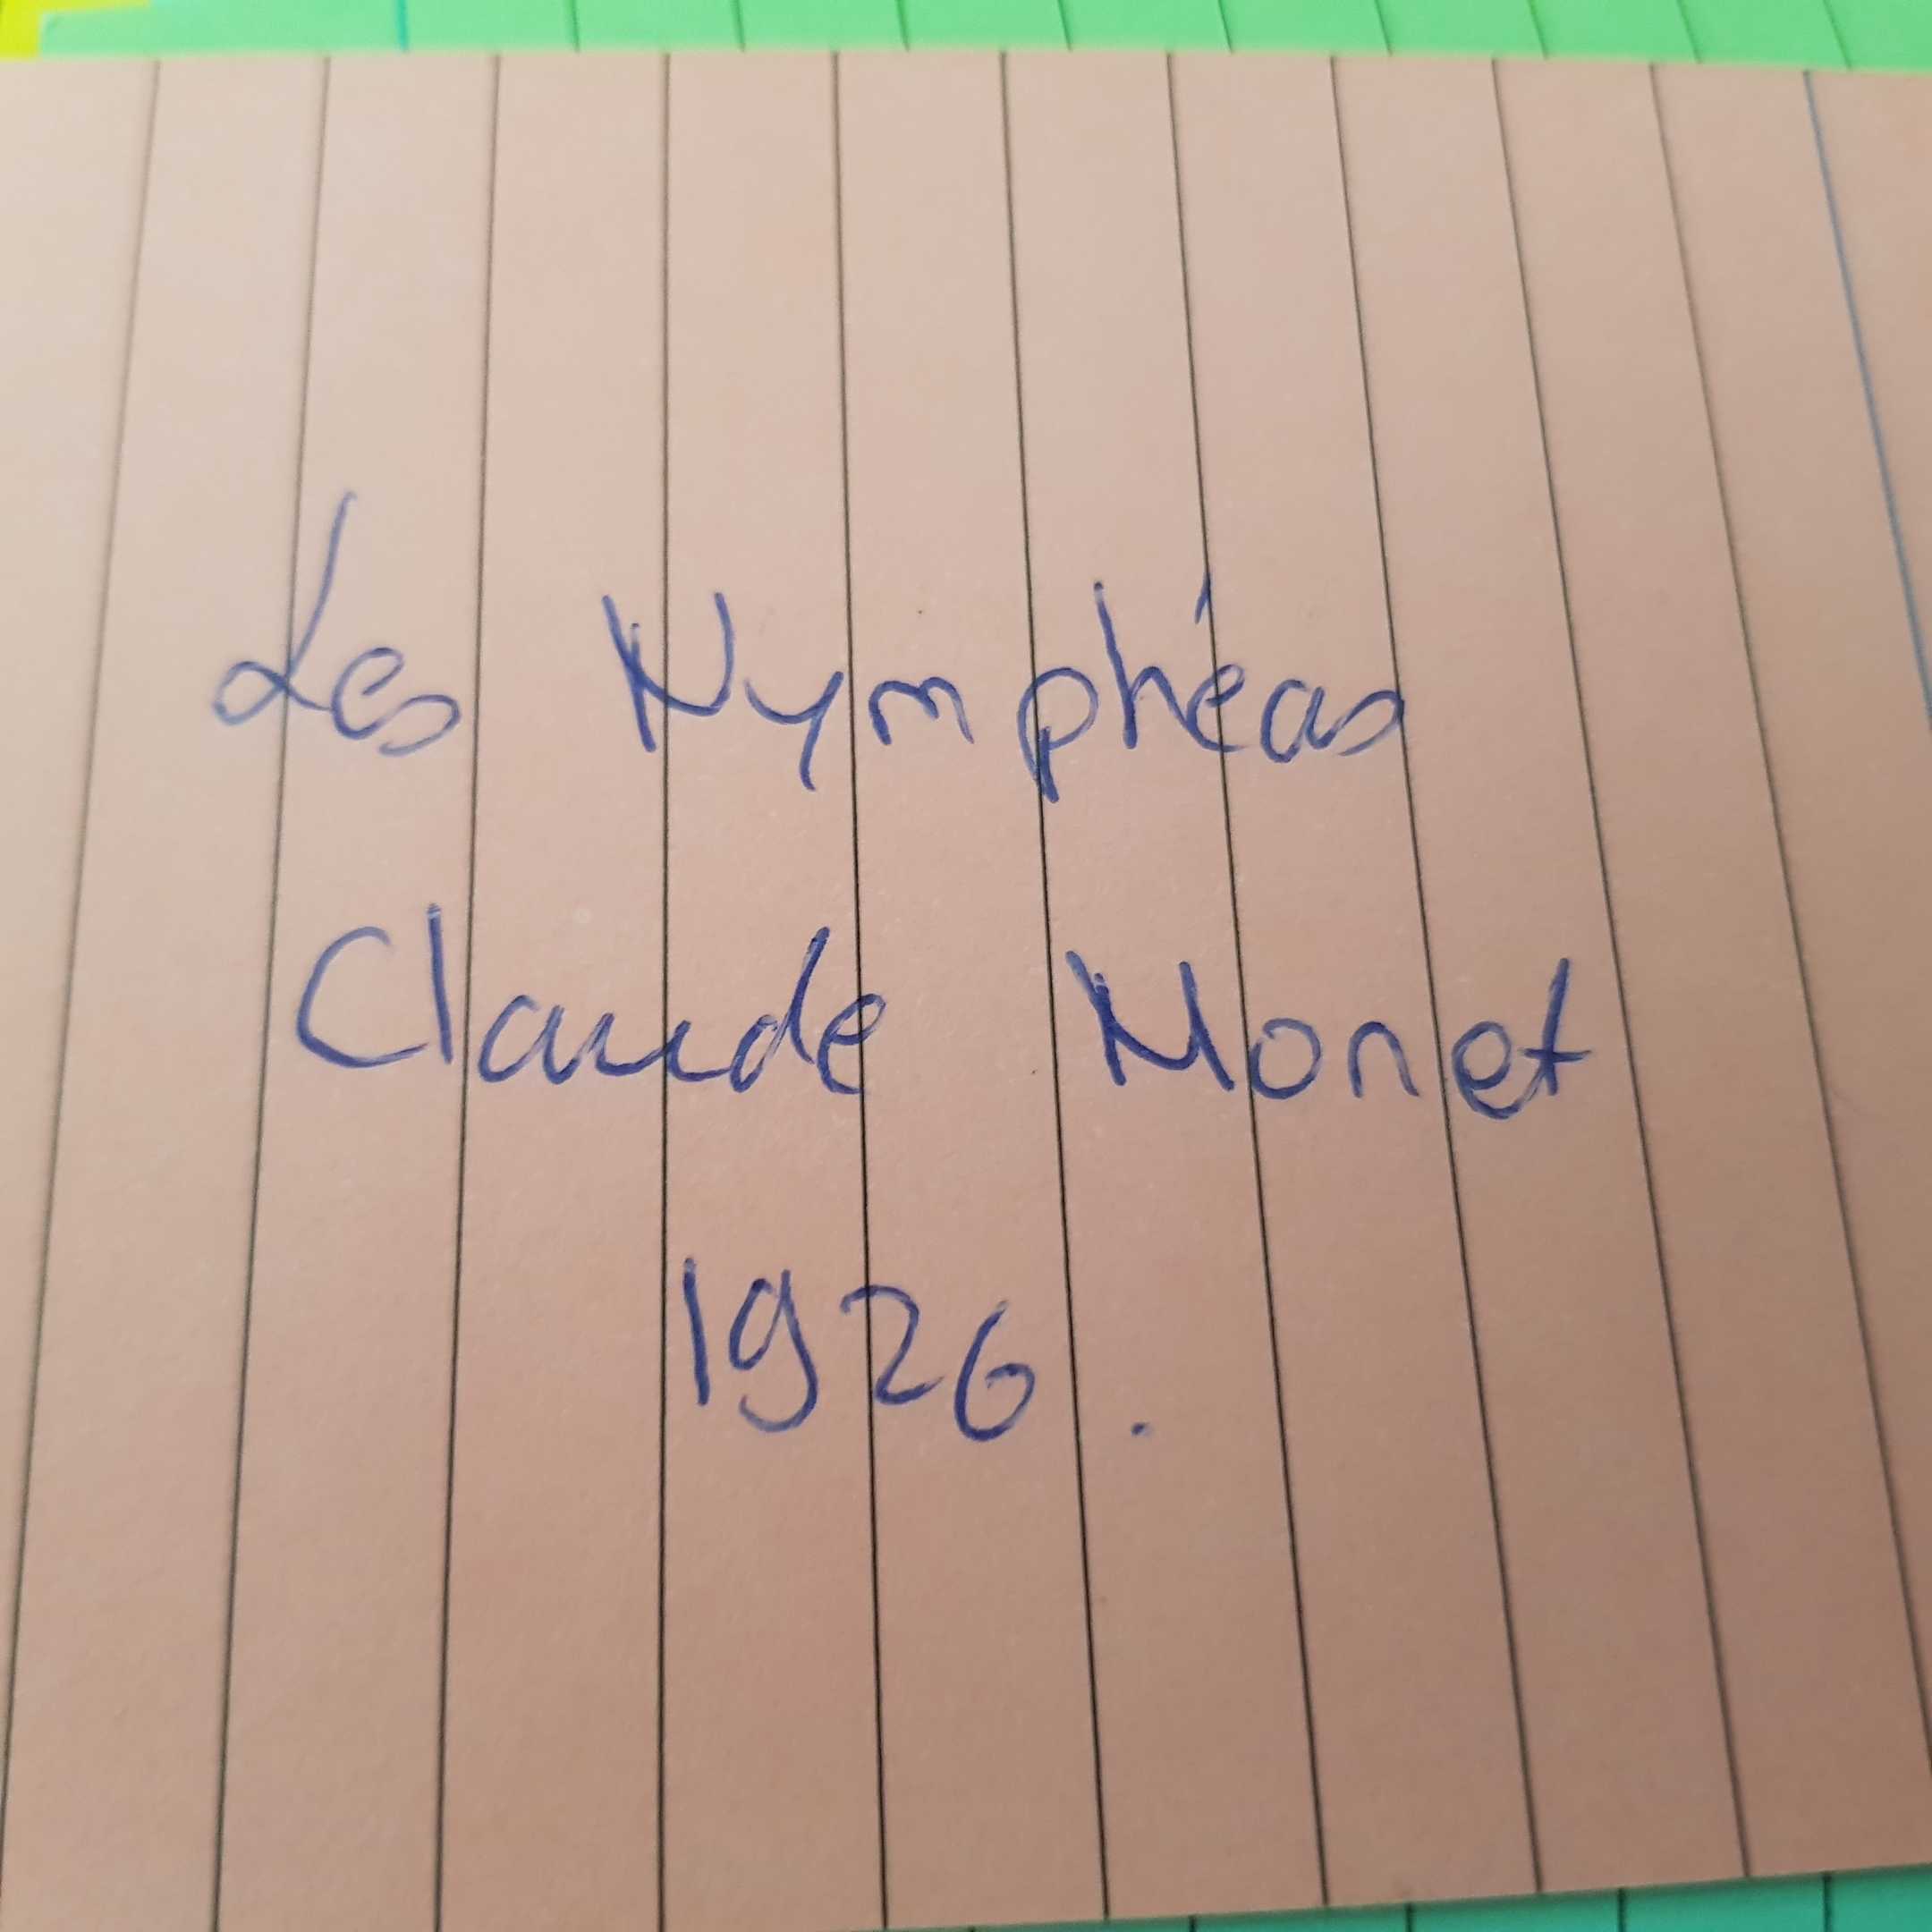 Les Nymphéas
Claude Monet
1926.